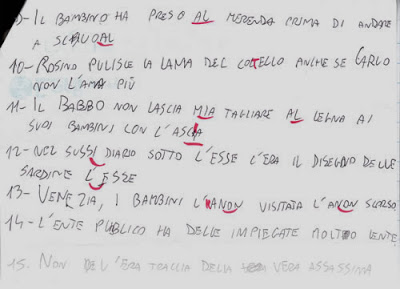 9-IL BAMBINO HA PRESO AL MERENDA PRIMA DI ANDARE
A SCAUOAL
10-ROSINO PULISCE LA LAMA DEL COLTELLO ANCHE SE CARLO
NON L'AMA PIÙ
11-IL BABBO NON LASCIA MIA TAGLIARE AL LEGNA AI
SUOI BAMBINI CON L'ASCIA
12-NEL SUSSIDIARIO SOTTO L'ESSE L'ERA IL DISEGNO DELLE
SARDINE L'ESSE
13-VENEZIA, I BAMBINI L'ANON VISITATA L'ANON SCORSO
14-L'ENTE PUBLICO HA DELLE IMPIEGATE MOLTO LENTE
15. NON L'ERA TRACCIA DELLA VERA ASSASSINA